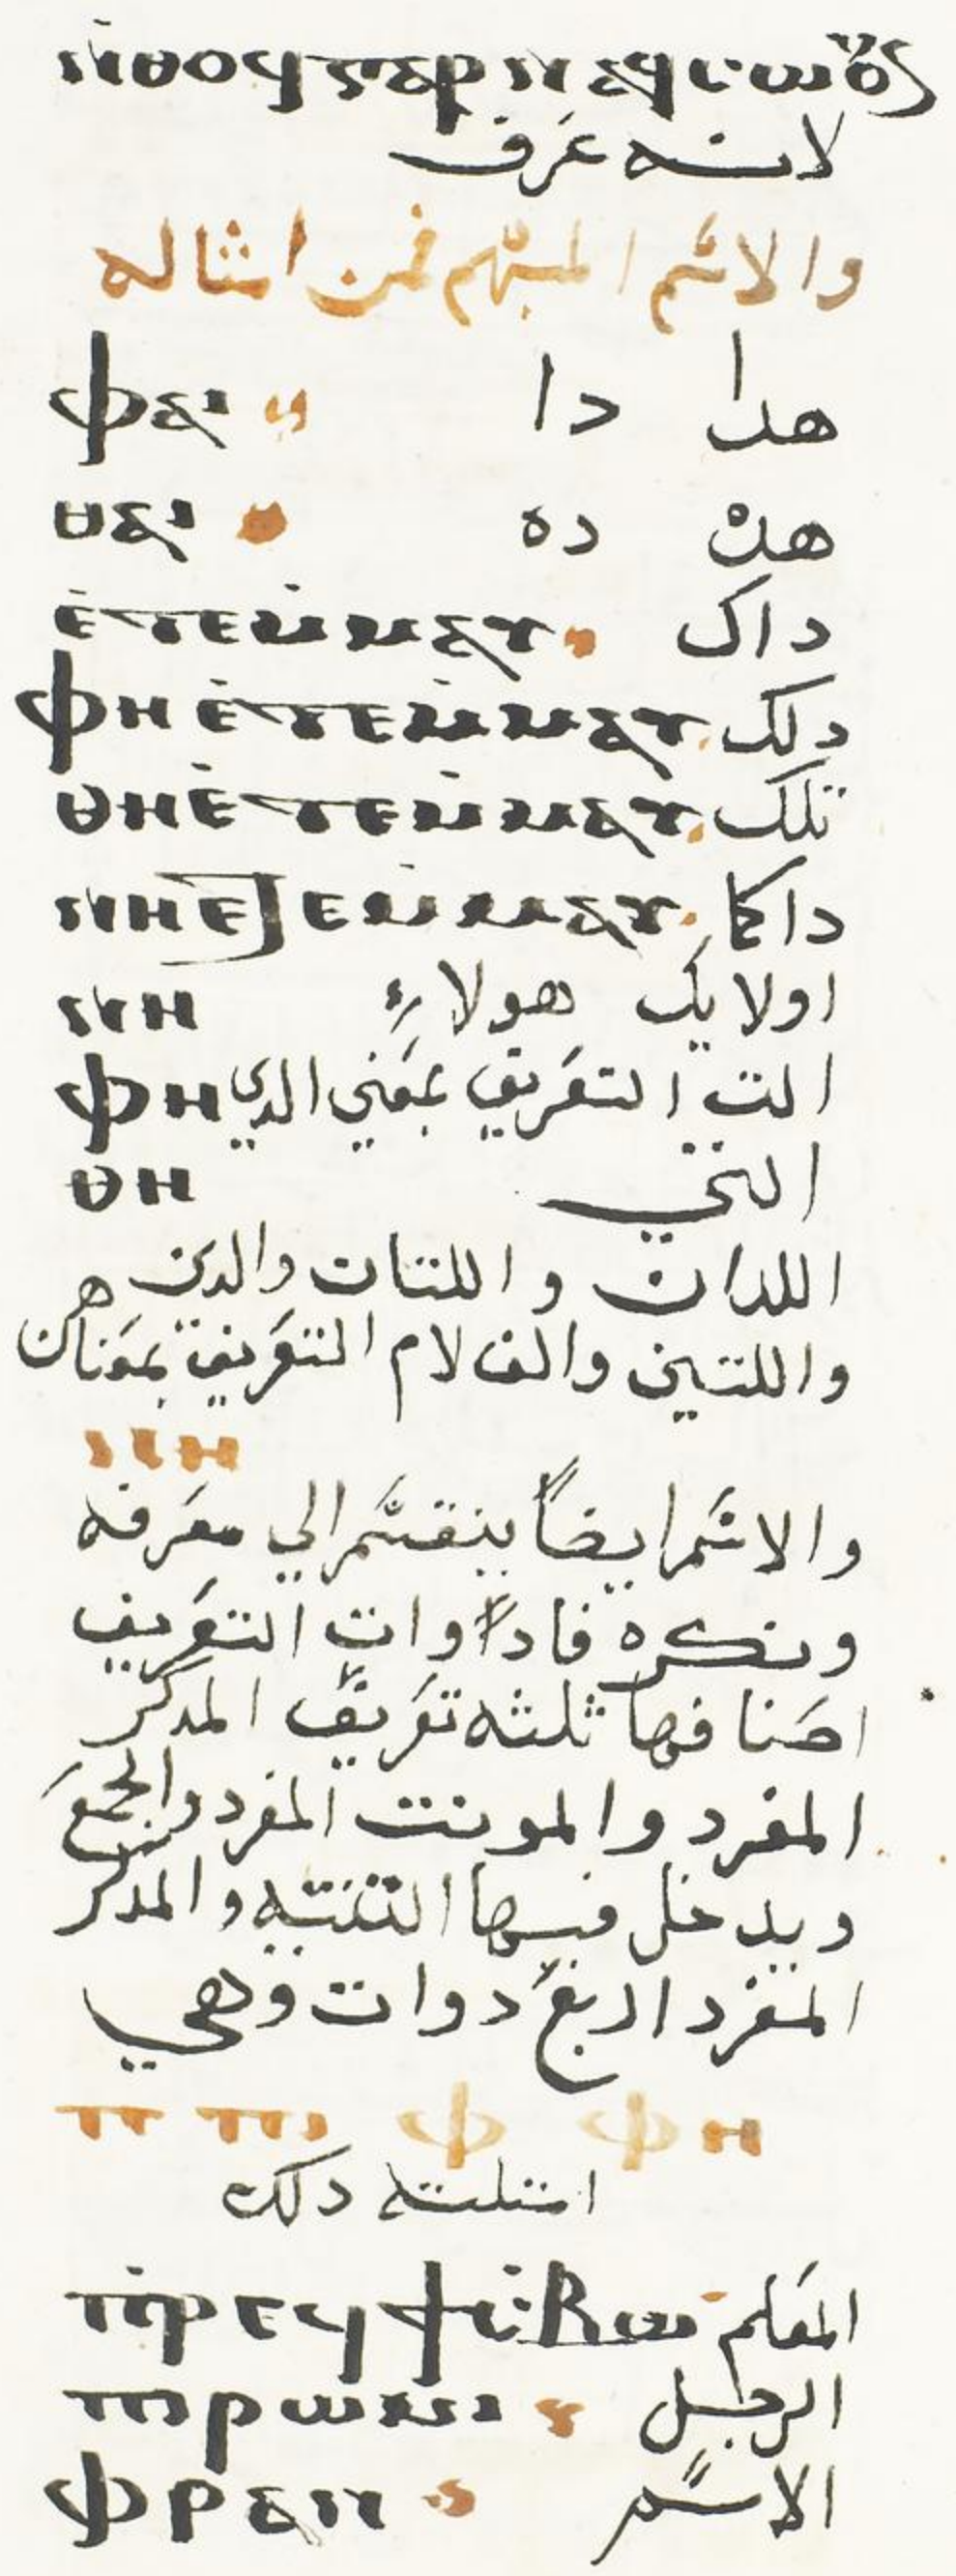 ⲛ̀ⲑⲟϥ ⲅⲁⲣ ⲛⲁϥⲥⲱⲟⲩⲛ
لانه عرف
والاسم المبهم فمن امثاله
ⲫⲁⲓ دا هدا
ⲑⲁⲓ ده هده
ⲉ̀ⲧⲉⲙ̀ⲙⲁⲩ داك
ⲫⲏⲉ̀ⲧⲉⲙ̀ⲙⲁⲩ دلك
ⲑⲏⲉ̀ⲧⲉⲙ̀ⲙⲁⲩ تلك
ⲛⲏⲉⲧⲉⲙ̀ⲙⲁⲩ داكما
ⲛⲏ اولايك هولاء
ⲫⲏ الف التعريف بمعني الدي
ⲑⲏ التي
اللدان و اللتان والدين
واللتين والف لام التعريف بمعناهن
ⲛⲏ
والاسم ايضاً ينقسم الي معرفه
ونكره فاداوات التعريف
اصنافها ثلثه تعريف المدكر
المفرد والمونت المفرد والجمع
ويدخل فيها التثنيه والمدكر
المفرد اربع دوات وهي
ⲡ ⲡⲓ ⲫ ⲫⲏ
امتلته دلك
ⲡⲓⲣⲉϥϯⲥⲃⲱ المعلم
ⲡⲓⲣⲱⲙⲓ الرجل
ⲫⲣⲁⲛ الاسم